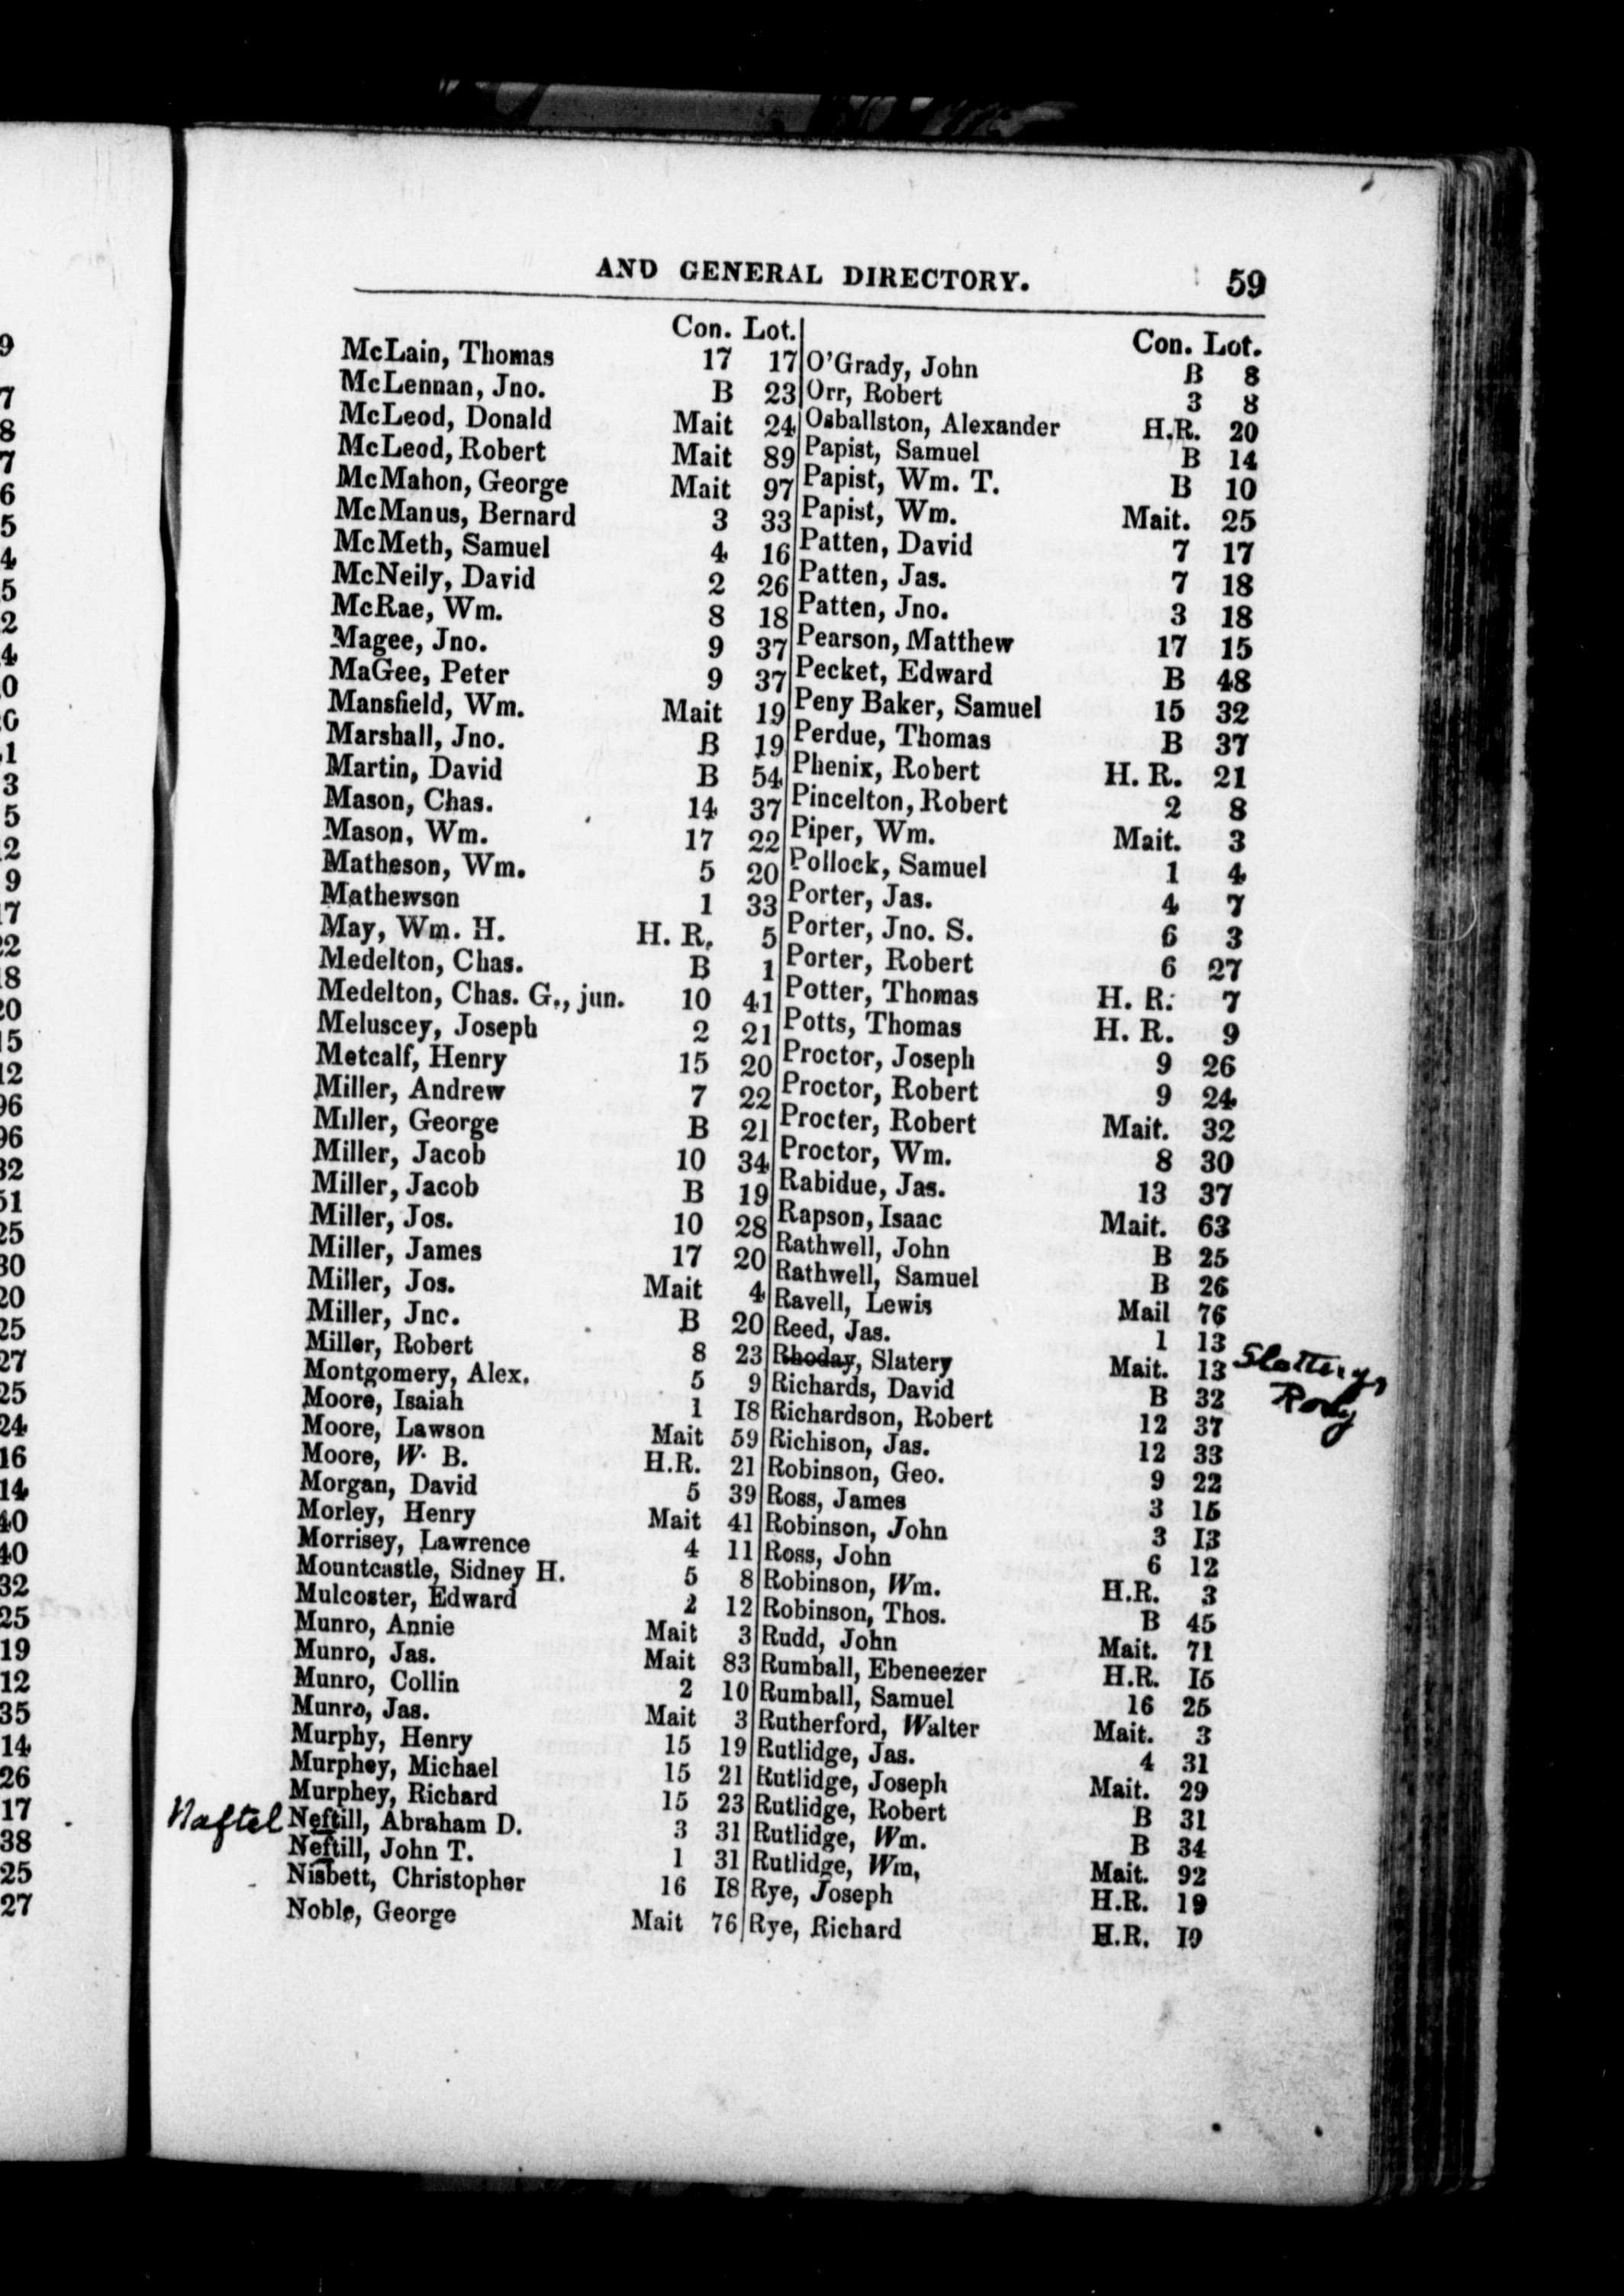 AND GENERAL DIRECTORY. 59
Con. Lot.
McLain, Thomas 17 17
McLennan, Jno. B 23
McLeod, Donald Mait 24
McLeod, Robert Mait 89
McMahon, George Mait 97
McManus, Bernard 3 33
McMeth, Samuel 4 16
McNeily, David 2 26
McRae, Wm. 8 18
Magee, Jno. 9 37
MaGee, Peter 9 37
Mansfield, Wm. Mait 19
Marshall, Jno. B 19
Martin, David B 54
Mason, Chas. 14 37
Mason, Wm. 17 22
Matheson, Wm. 5 20
Mathewson 1 33
May, Wm. H. H. R. 5
Medelton, Chas. B 1
Medelton, Chas. G., jun. 10 41
Meluscey, Joseph 2 21
Metcalf, Henry 15 20
Miller, Andrew 7 22
Miller, George B 21
Miller, Jacob 10 34
Miller, Jacob B 19
Miller, Jos. 10 28
Miller, James 17 20
Miller, Jos. Mait 4
Miller, Jnc. B 20
Miller, Robert 8 23
Montgomery, Alex. 5 9
Moore, Isaiah 1 18
Moore, Lawson Mait 59
Moore, W. B. H.R. 21
Morgan, David 5 39
Morley, Henry Mait 41
Morrisey, Lawrence 4 11
Mountcastle, Sidney H. 5 8
Mulcoster, Edward 2 12
Munro, Annie Mait 3
Munro, Jas. Mait 83
Munro, Collin 2 10
Munro, Jas. Mait 3
Murphy, Henry 15 19
Murphey, Michael 15 21
Murphey, Richard 15 23
Naftel Neftill, Abraham D. 3 31
Neftill, John T. 1 31
Nisbett, Christopher 16 18
Noble, George Mait 76
Con. Lot.
O'Grady, John B 8
Orr, Robert 3 8
Osballston, Alexander H.R. 20
Papist, Samuel B 14
Papist, Wm. T. B 10
Papist, Wm. Mait. 25
Patten, David 7 17
Patten, Jas. 7 18
Patten, Jno. 3 18
Pearson, Matthew 17 15
Pecket, Edward B 48
Peny Baker, Samuel 15 32
Perdue, Thomas B 37
Phenix, Robert H. R. 21
Pincelton, Robert 2 8
Piper, Wm. Mait. 3
Pollock, Samuel 1 4
Porter, Jas. 4 7
Porter, Jno. S. 6 3
Porter, Robert 6 27
Potter, Thomas H. R. 7
Potts, Thomas H. R. 9
Proctor, Joseph 9 26
Proctor, Robert 9 24
Procter, Robert Mait. 32
Proctor, Wm. 8 30
Rabidue, Jas. 13 37
Rapson, Isaac Mait. 63
Rathwell, John B 25
Rathwell, Samuel B 26
Ravell, Lewis Mail 76
Reed, Jas. 1 13
Rhoday, Slatery Mait. 13 Slattery,
Rody
Richards, David B 32
Richardson, Robert 12 37
Richison, Jas. 12 33
Robinson, Geo. 9 22
Ross, James 3 15
Robinson, John 3 13
Ross, John 6 12
Robinson, Wm. H.R. 3
Robinson, Thos. B 45
Rudd, John Mait. 71
Rumball, Ebeneezer H.R. 15
Rumball, Samuel 16 25
Rutherford, Walter Mait. 3
Rutlidge, Jas. 4 31
Rutlidge, Joseph Mait. 29
Rutlidge, Robert B 31
Rutlidge, Wm. B 34
Rutlidge, Wm, Mait. 92
Rye, Joseph H.R. 19
Rye, Richard H.R. 19